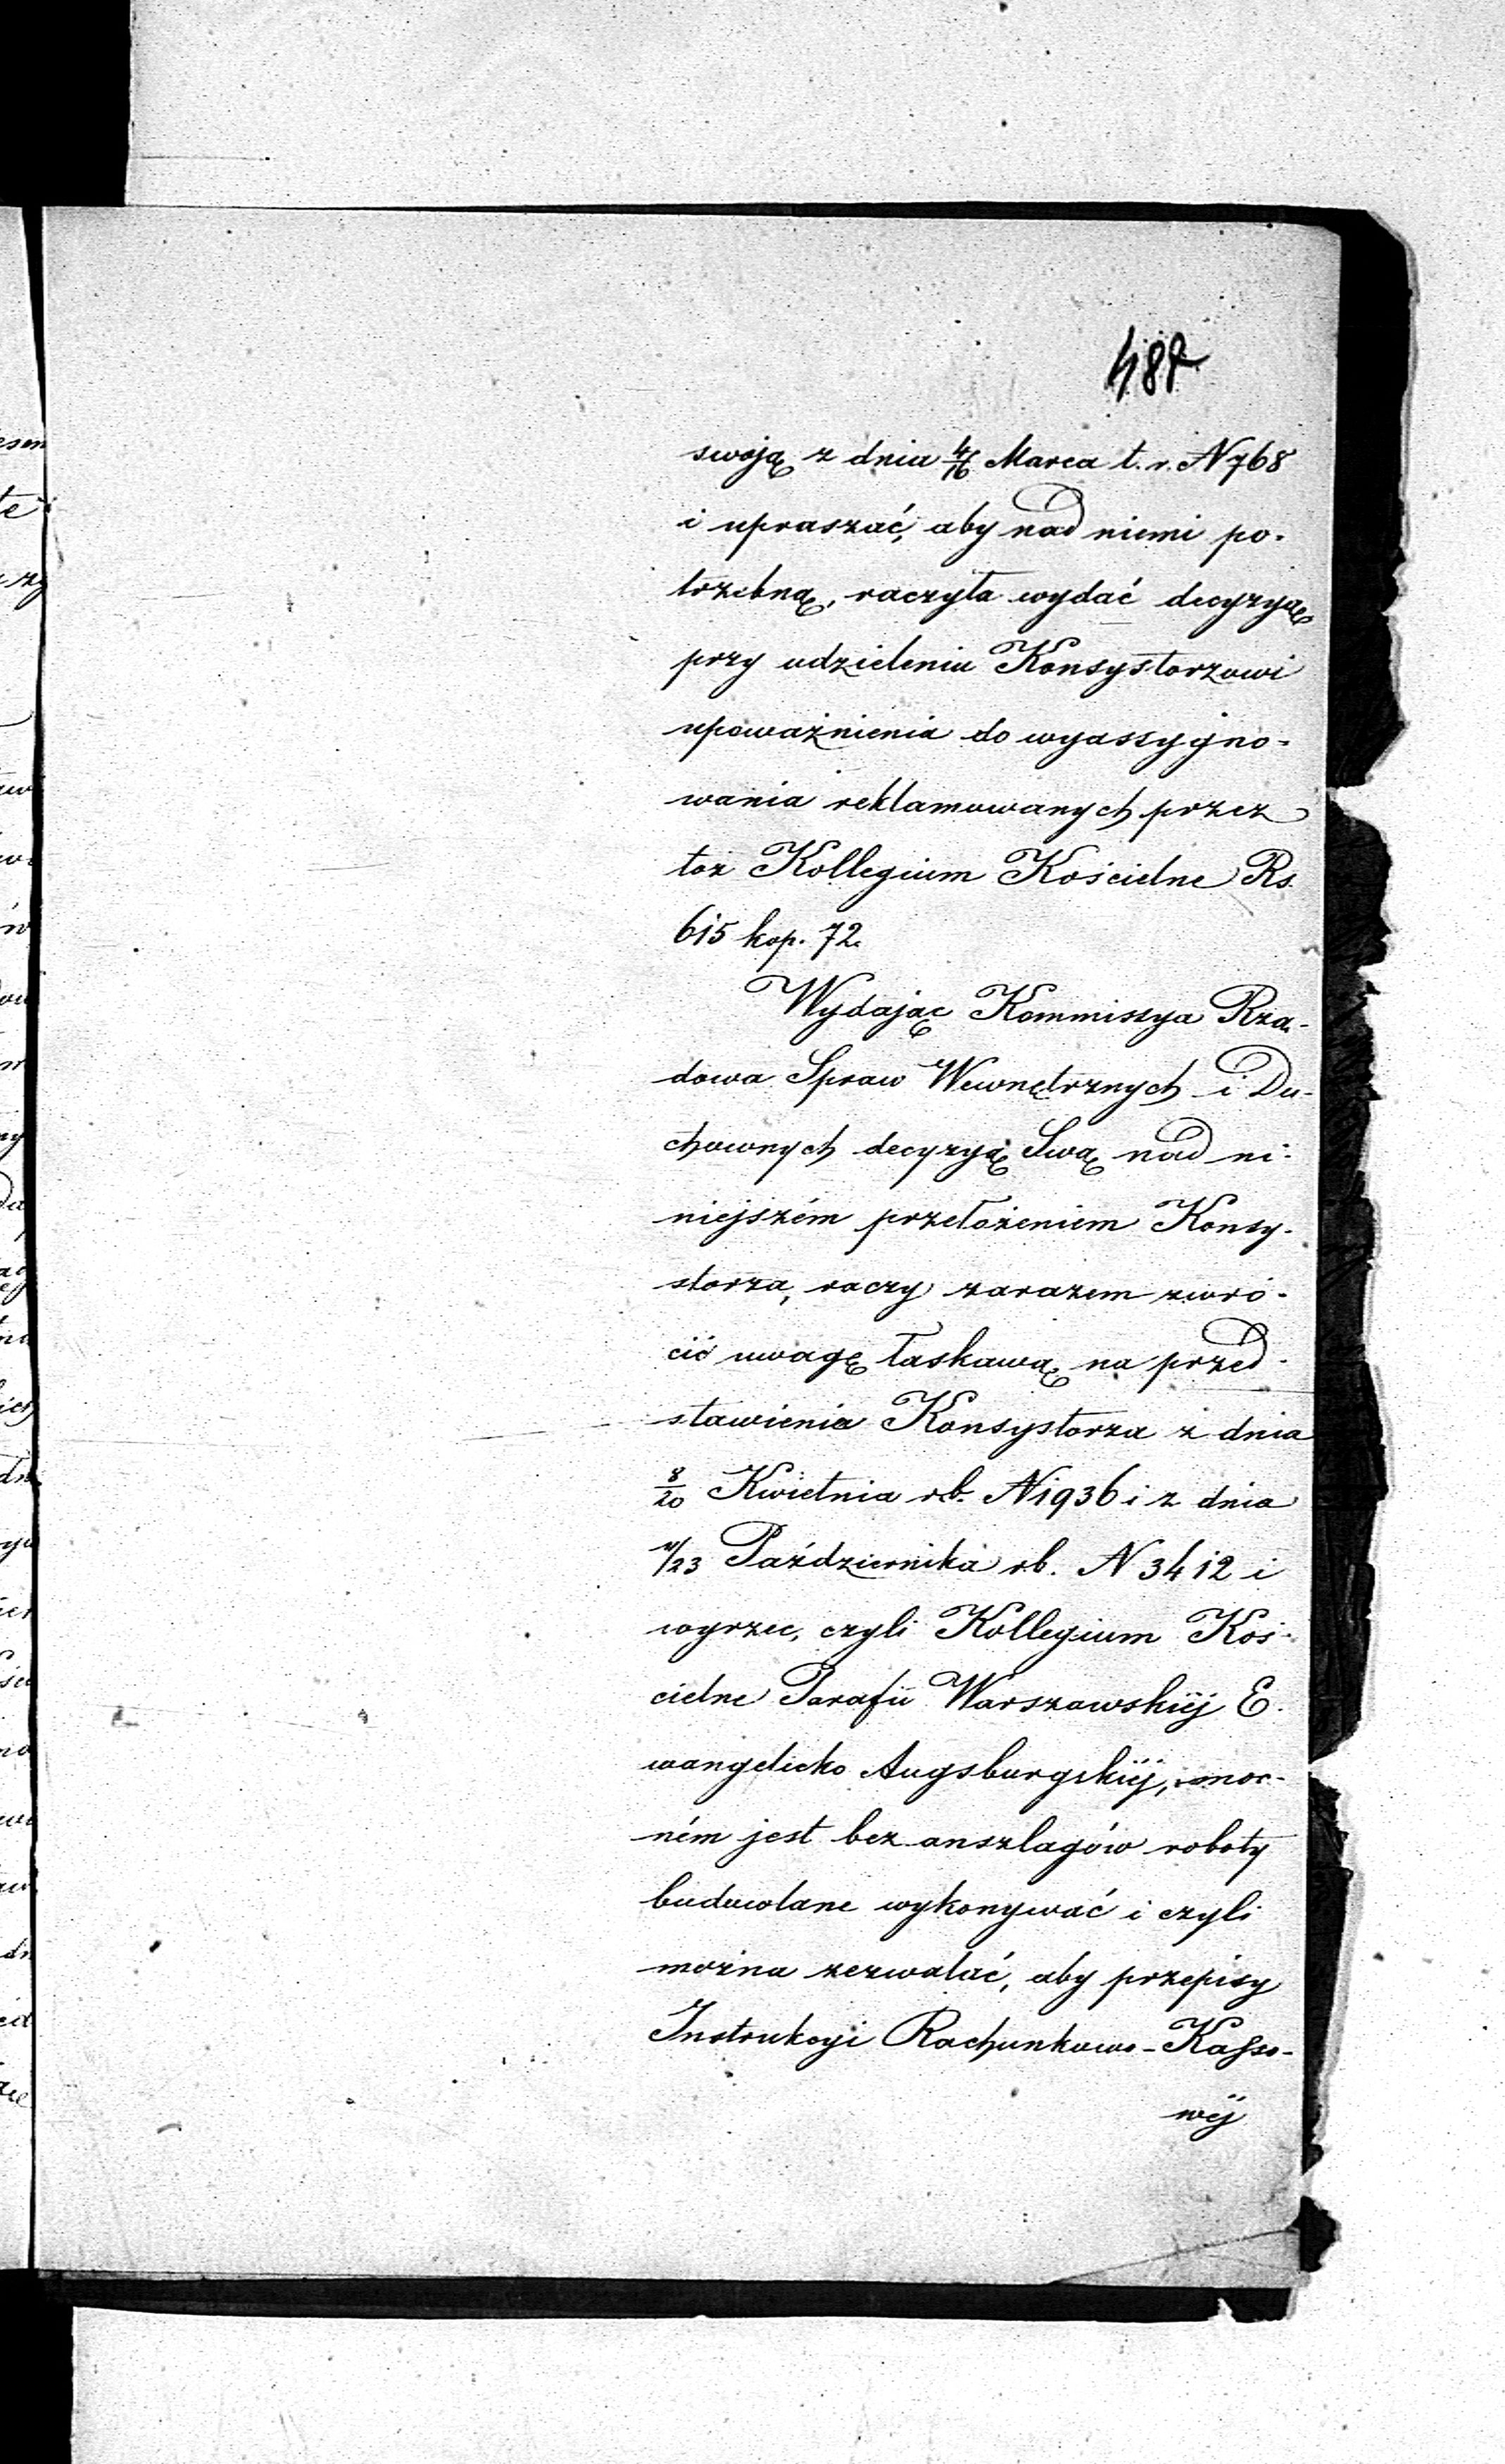 swoją z dnia 4/16 Marca t. r. N 768
i upraszać, aby nad niemi po-
trzebną, raczyła wydać decyzyą
przy udzieleniu Konsystorzowi
upoważnienia do wyassygno-
wania reklamowanych przez
toż Kollegium Kościelne Rs.
615 kop. 72.
Wydając Kommissya Rzą-
dowa Spraw Wewnętrznych i Du-
chownych decyzyą Swą nad ni-
niejszém przełożeniem Konsy-
storza, raczy zarazem zwró-
cić uwagę łaskawą na przed-
stawienia Konsystorza z dnia
8/20 Kwietnia rb. N 1936 i z dnia
11/23 Października rb. N 3412 i
wyrzec, czyli Kollegium Koś-
cielne Parafii Warszawskiéj E-
wangelicko Augsburgskiéj,
ném jest bez anszlagów roboty
budowlane wykonywać i czyli
można zezwalać, aby przepisy
Instrukcyi Rachunkowo-Kasso-
wéj